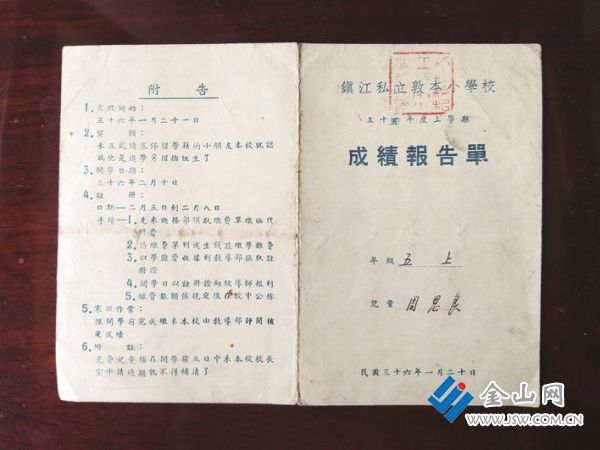 附告
1.寒假開始：
三十六年一月二十一日
2.留額：
未正式請求保留學籍的小朋友本校就認
為他是退學另招插班生了
3.開學日期：
三十六年二月十日
4.註冊：
日期—二月五日到二月八日
手續—1.先來總務部領取繳費單繳納代
辦費
2.憑繳費單到進生錢莊繳學雜費
3.以學雜費收據到教導部換取註
冊證
4.開學日以註冊證向級導師報到
5.繳費數額係規定後在校中公佈
5.寒假作業：
推開學前完成繳來本校由教導部評閱核
定成績
6.附註：
免費兒童須在開學前五日中來本校校長
室申請過期就不得補請了
鎮江私立敦本小學校
三十五年度上學期
成績報告單
年級 五上
兒童 周思良
民國三十六年一月二十日
金山网
WWW.JSW.COM.CN